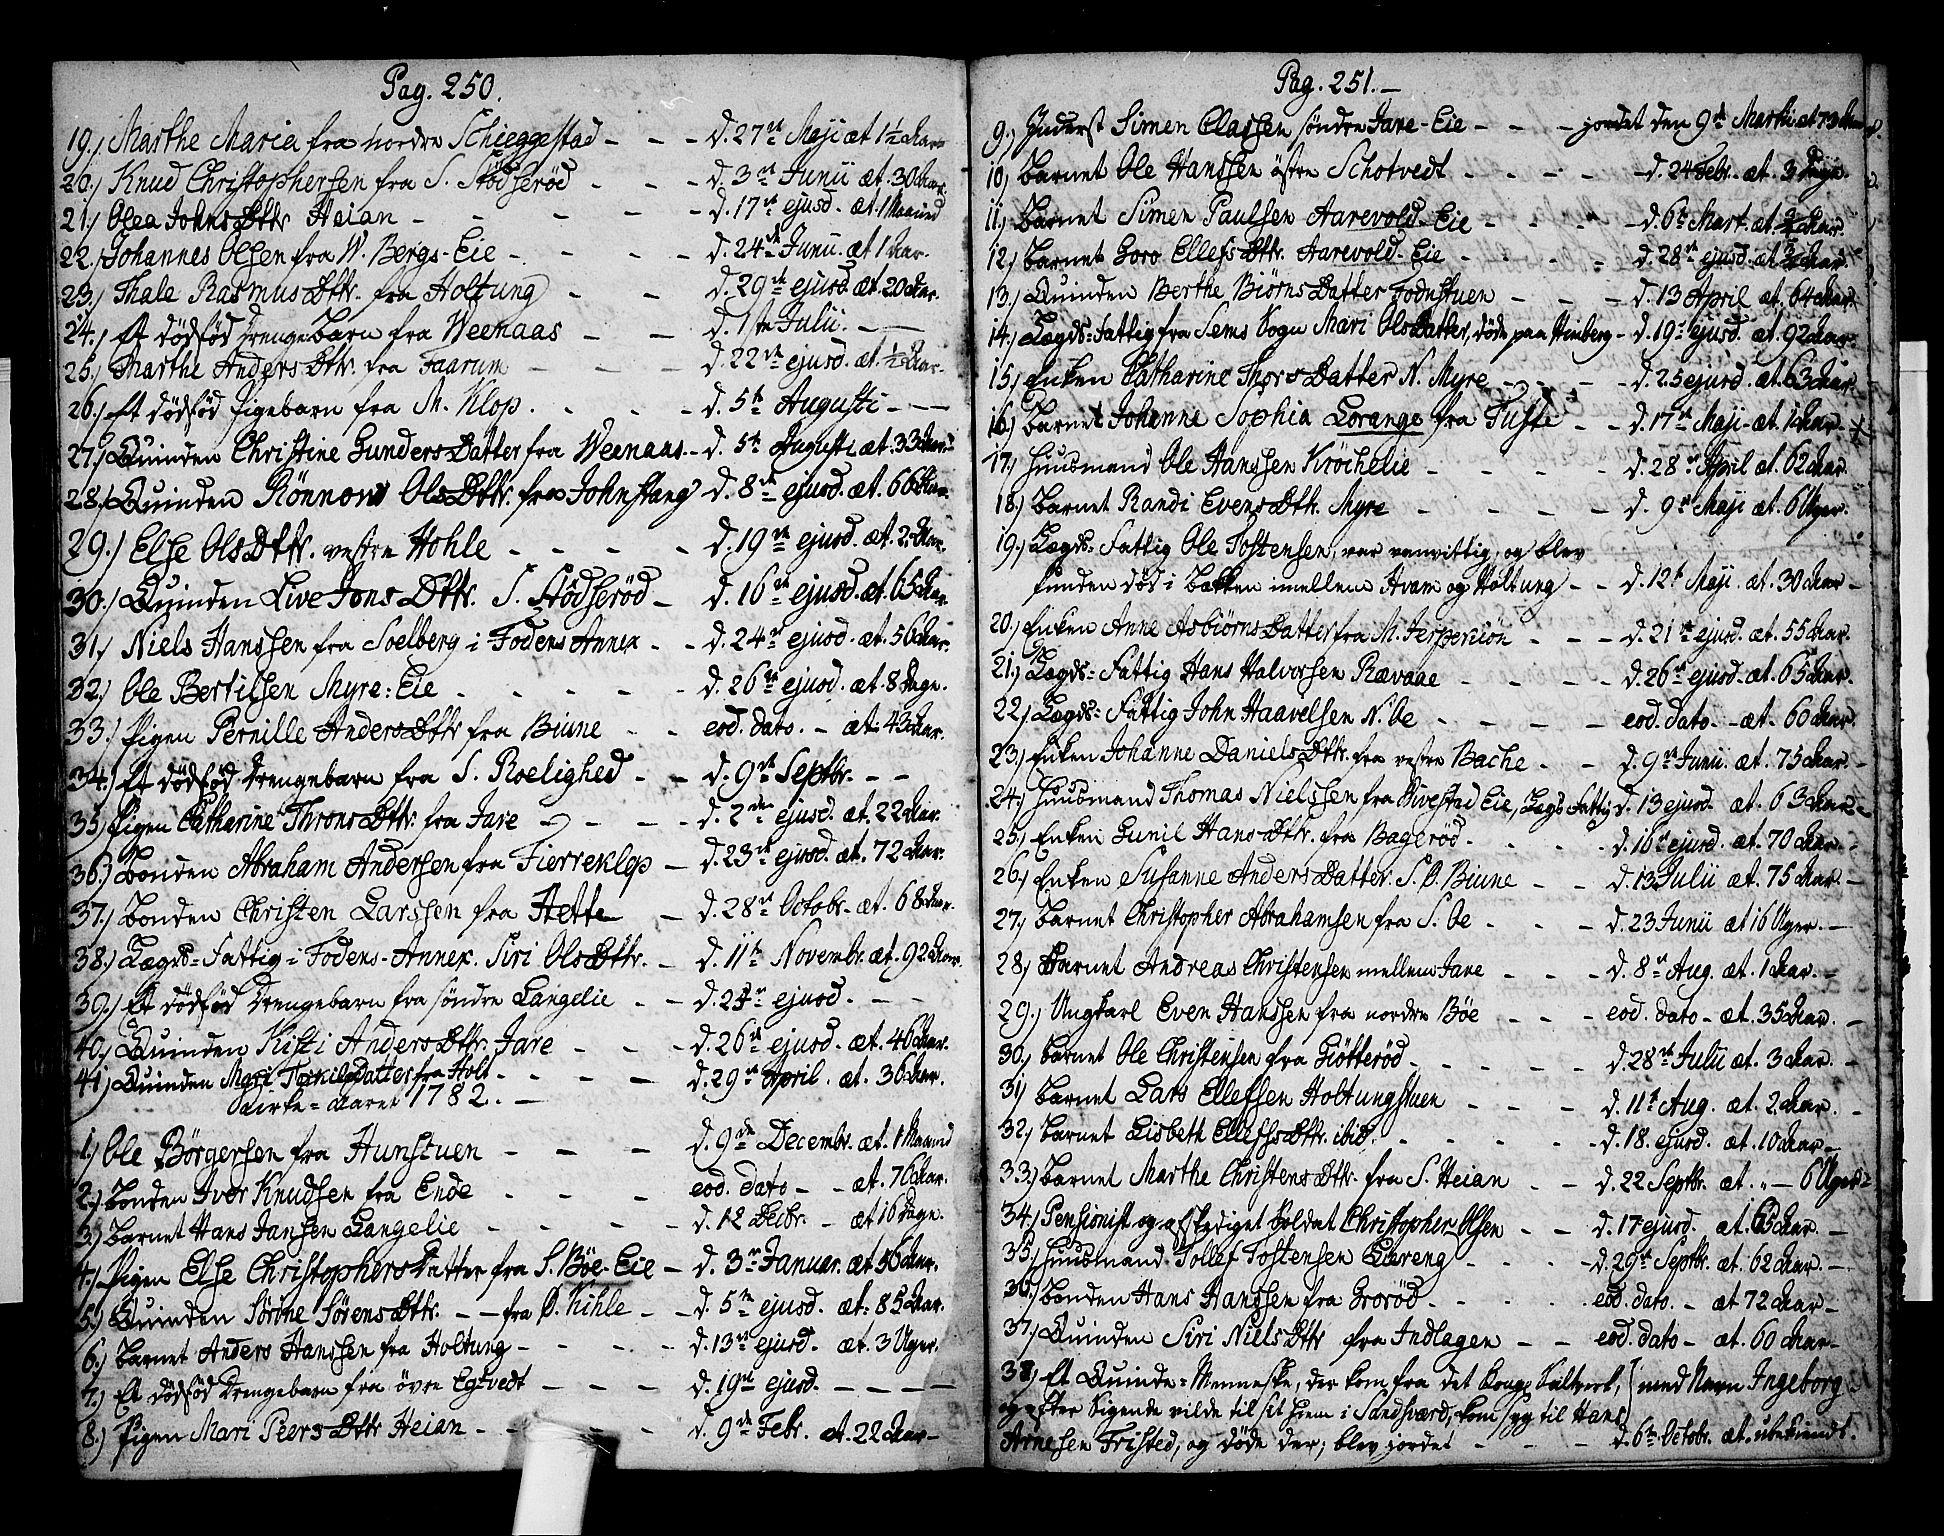 Pag. 250.
19.) Marthe Maria fra nordre Schieggestad - - - d. 27de Maji æt 1½ Aar
20.) Knud Christophersen fra S. Stödserød - - - d. 3die Junii æt. 30 Aar.
21.) Olea Johns Dttr Heian - - - - d. 17de ejusd. æt. 1 Maaned
22.) Johannes Olsen fra W. Bergs-Eie - - - d. 24de Junii æt 1 Aar.
23.) Thale Rasmus Dttr. fra Holtung - - d. 29de ejusd. æt. 20 Aar.
24.) Et dödföd Drengebarn fra Weenaas - - d. 1ste Julii. - -
25.) Marthe Anders Dttr. fra Faarum - - - d. 22de ejusd. æt. ½ Aar.
26.) Et dödföd Pigebarn fra M. Klop. - - - d. 5te Augusti - - -
27.) Quinden Christine Gunders Datter fra Weenaas - - d. 5te Augusti æt. 33 Aar.
28.) Quinden Rönnow Ols Dttr. fra Johnstang d. 8de ejusd. æt. 66 Aar.
29.) Else Ols Dttr. vestre Hohle - - - - d. 19de ejusd. æt. 2 Aar.
30.) Quinden Live Jons Dttr. S. Stödserød - d. 16de ejusd. æt. 65 Aar.
31.) Niels Hanssen fra Soelberg i Fodens Annex - - d. 24de ejusd. æt. 56 Aar.
32.) Ole Bertilsen Myre-Eie - - - - d. 26de ejusd. æt. 8 Dage.
33.) Pigen Pernille Anders Dttr fra Biune - - eod. dato. - æt. 43 Aar.
34.) Et dödföd Drengebarn fra S. Roelighed - - d. 9de Septbr. - -
35.) Pigen Catharine Throns Dttr. fra Jare - - - d. 2den ejusd. æt. 22 Aar.
36.) Bonden Abraham Andersen fra Fierreklop - d. 23de ejusd. æt. 72 Aar.
37.) Bonden Christen Larssen fra Hette - d. 28de Octobr. æt. 68 Aar.
38.) Lægds-Fattig i Fodens-Annex. Siri Ols Dttr. - d. 11te Novembr. æt. 92 Aar.
39.) Et dödföd Drengebarn fra söndre Langelie - - d. 25de ejusd. - -
40.) Quinden Kisti Anders Dttr. Jare - - - d. 26de ejusd. æt. 46 Aar.
41.) Quinden Mari Torkilsdatter fra Holt - - - - d. 29de April. æt. 36 Aar.
Kirke-Aaret 1782. -
1.) Ole Börgersen fra Hunstuen - - - d. 9de Decembr. æt. 1 Maaned
2.) Bonden Iver Knudsen fra Ende - - - eod. dato - - æt. 76 Aar.
3.) Barnet Hans Jansen Langelie - - - - d. 12 Decbr. - æt 16 Dage.
4.) Pigen Else Christophers Datter fra S. Böe-Eie - d. 3de Januar. æt 56 Aar.
5.) Quinden Sörine Sörens Dttr. - - fra Ö. Kihle - - d. 5te ejusd. æt. 85 Aar.
6.) Barnet Anders Hanssen fra Holtung - - - - d. 13de ejusd. æt. 3 Uger.
7.) Et dödföd Drengebarn fra övre Egtvedt - - - - d. 19de ejusd. - - - -
8.) Pigen Mari Peers Dttr Heian - - - - d. 9de Febr. æt. 22 Aar -
Pag. 251. -
9.) Inderst Simen Classen söndre Jare-Eie - - - jordet den 9de Martii æt 73 Aar
10.) Barnet Ole Hanssen östre Schotvedt - - - - - d. 24 Febr. æt. 3 Dage.
11.) Barnet Simen Paulsen Aarevold-Eie - - - - d. 6te Mart. æt. ¾ Aar.
12.) Barnet Goro Ellefs Dttr. Aarevold-Eie - - - - d. 28de ejusd. æt ¾ Aar.
13.) Quinden Berthe Biörns Datter Fodnstuen - - - d. 13 April æt. 64 Aar.
14.) Lægds-Fattig fra Sems Sogn Mari Ols Datter, döde paa Himberg - d. 19de ejusd. æt. 92 Aar.
15.) Enken Catharine Thors Datter N. Myre - - - - d. 25 ejusd. æt. 63 Aar.
16.) Barnet Johanne Sophia Lorange fra Tufte - - d. 17de Maji - æt. 1 Aar.
17.) Huusmand Ole Hanssen Kröchelie - - - - d. 28de April æt. 62 Aar.
18.) Barnet Randi Evens Dttr. Myre - - - - d. 9de Maji æt. 6 Uger.
19.) Lægds-Fattig Ole Tostensen, var vanvittig, og blev
funden död i Bakken imellem Hvam og Holtung - - d. 12te Maji. æt. 30 Aar -
20.) Enken Anne Asbiörns Datter fra M. Jespersön - - - d. 21de ejusd. æt. 55 Aar.
21.) Lægds-Fattig Hans Halvorsen Rævaae - - - - d. 26de ejusd. æt. 65 Aar.
22.) Lægds-Fattig John Haavelsen N. Oe - - - - eod. dato - æt. 60 Aar.
23.) Enken Johanne Daniels Dttr. fra vestre Bache - - d. 9de Junii. æt. 75 Aar. -
24.) Huusmand Thomas Nielssen fra Sivestad Eie, Lægs-Fattig d. 13 ejusd. æt. 63 Aar -
25.) Enken Gunil Hans Dttr. fra Bagerød - - - - d. 16de ejusd. æt. 70 Aar -
26.) Enken Susanne Anders Datter S. Ö. Biune - - d. 13 Julii æt. 75 Aar. -
27.) Barnet Christopher Abrahamsen fra S. Oe - - - d. 23 Junii æt 16 Uger. -
28.) Barnet Andreas Christensen mellem Jare - - - d. 8de Aug. æt. 1 Aar. -
29.) Ungkarl Even Hanssen fra nordre Böe - - - eod. dato - æt. 35 Aar. -
30.) Barnet Ole Christensen fra Giötteröd - - - - - d. 28de Julii æt. 3 Aar.
31.) Barnet Lars Ellefsen Holtungstuen - - - d. 11te Aug. æt. 2 Aar. -
32.) Barnet Lisbeth Ellefs Dttr. ibid. - - - - - d. 18. ejusd. æt. 10 Aar -
33.) Barnet Marthe Christens Dttr. fra S. Heian - - d. 22 Septbr. æt. " - 6 Uger
34.) Pensionist og afskediget Soldat Christopher Olsen - - d. 17 ejusd. æt. 65 Aar. -
35.) Huusmand Tollef Tostensen Lureng - - - - d. 29de Septbr. æt. 62 Aar. -
36.) Bonden Hans Hanssen fra Grorød - - - - - eod. dato. - æt 72 Aar -
37.) Quinden Siri Niels Dttr fra Indlagen - - eod. dato - æt. 60 Aar -
38.) Et Quinde-Menneske, der kom fra det Kong. Saltverk, med Navn Ingeborg
og efter Sigende vilde til sit Hiem i Sandsværd, kom syg til Hans
Arnesen Fristed, og döde der, blev jordet - - - d. 6te Octobr. æt. ubekiendt.